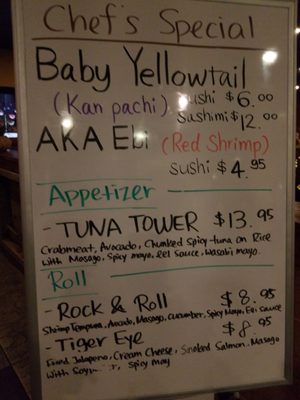 Chef's Special
Baby Yellowtail
(Kan pachi) Sushi $6.00
Sashimi $12.00
AKA Ebi (Red Shrimp)
Sushi $4.95
Appetizer
- TUNA TOWER $13.95
Crabmeat, Avocado, Chunked Spicy tuna on Rice
With Masago, Spicy mayo, Eel Sauce, Wasabi mayo.
Roll
- Rock & Roll $8.95
Shrimp Tempura, Avocado, Masago, Cucumber, Spicy Mayo, Eel sauce
- Tiger Eye $8.95
Fried Jalapeno, Cream Cheese, Smoked Salmon, Masago
With Spicy mayo